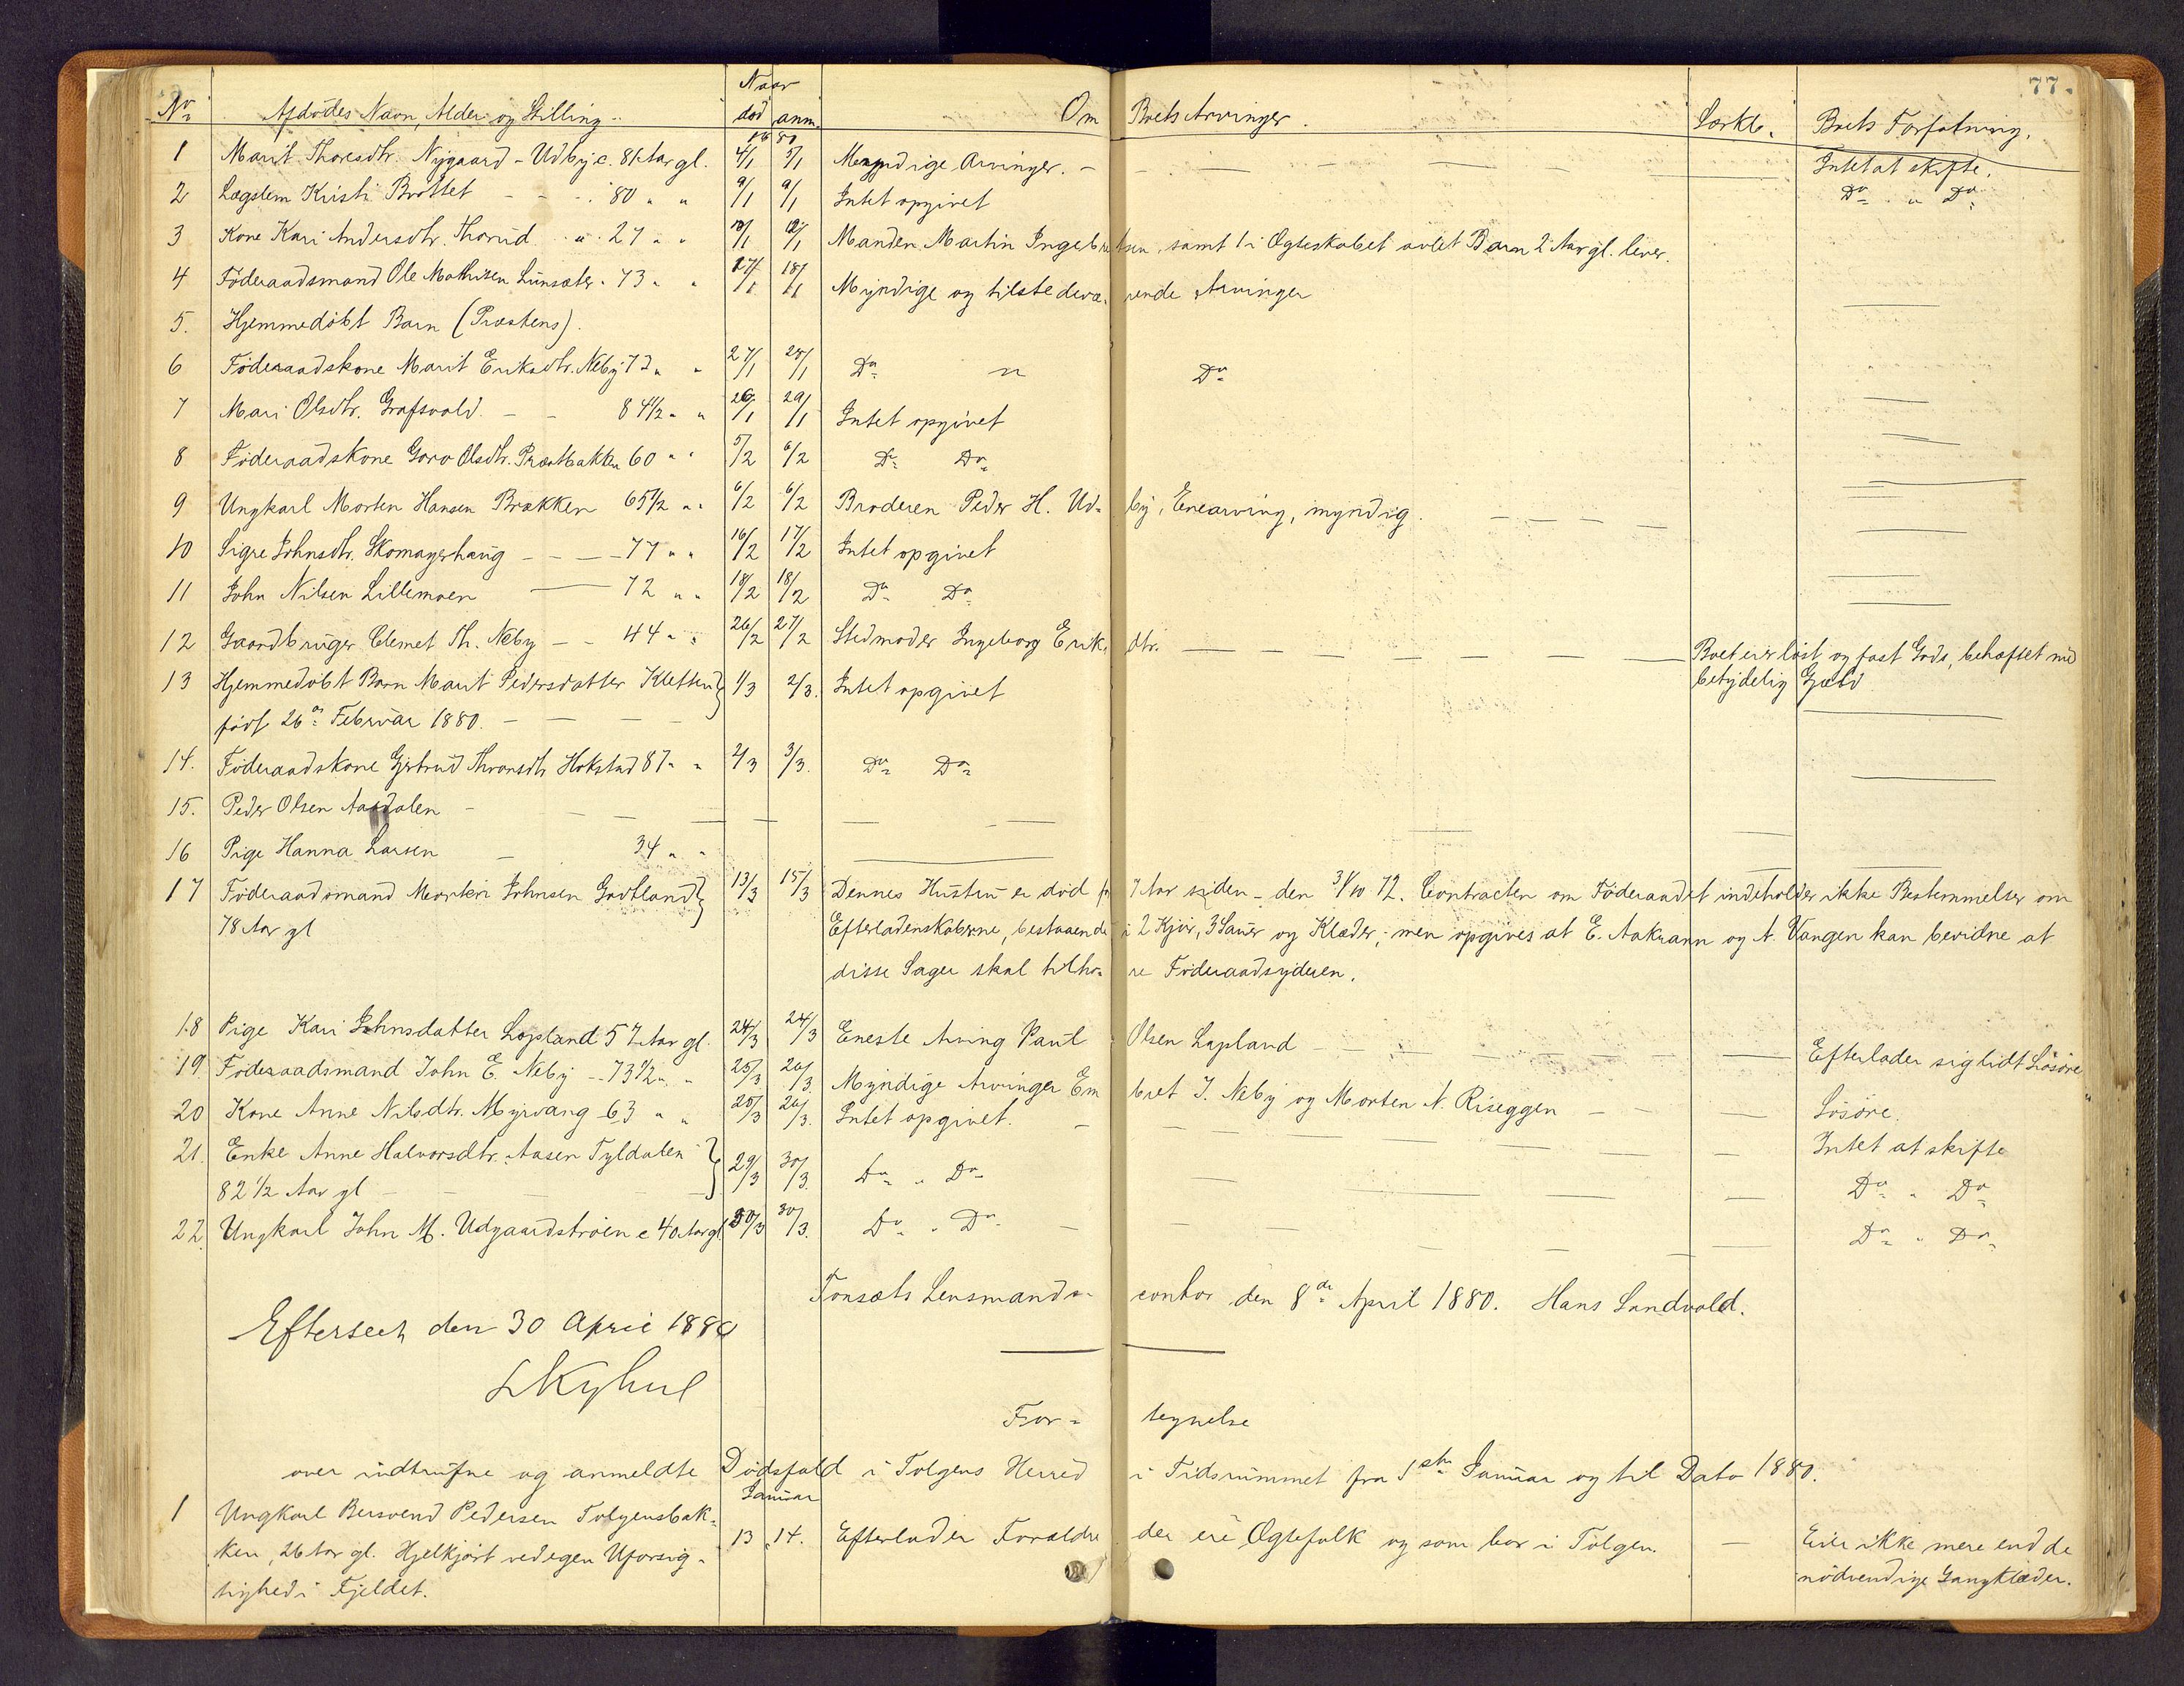 77.
Naar
No Afdödes Navn, Alder og Stilling. död anm. Om Boets Arvinger. Særkb. Boets Forfatning.
1880
1 Marit Thoresdtr. Nygaard - Udby c. 81 Aar gl. 4/1 5/1 Myndige Arvinger. - Intet at skifte.
2 Lægslem Kristi Brottet - - - 80 " " 9/1 9/1 Intet opgivet Do " Do
3 Kone Kari Andersdtr. Thorud " 27 " " 10/1 12/1 Manden Martin Ingebretsen, samt 1 i Ægteskabet avlet Barn 2 Aar gl. lever.
4 Föderaadsmand Ole Mathisen Lunsæter. 73 " " 17/1 18/1 Myndige og tilstedeværende Arvinger
5. Hjemmedöbt Barn (Præstens).
6 Föderaadskone Marit Eriksdtr. Neby 73 " " 27/1 28/1 Do " Do
7 Mari Olsdtr. Grafsvold. - - 84 1/2 " " 26/1 29/1 Intet opgivet
8 Föderaadskone Goro Olsdtr. Præstbakken 60 " " 5/2 6/2 Do Do
9 Ungkarl Morten Hansen Brækken 65 1/2 " " 6/2 6/2 Broderen Peder H. Udby, Enearving, myndig.
10 Sigre Johnsdtr. Skomagerhaug - - - 77 " " 16/2 17/2 Intet opgivet
11 John Nilsen Lillemoen - 72 " " 18/2 18/2 Do Do
12 Gaardbruger Clemet Th. Neby - - 44 " " 26/2 27/2 Stedmoder Ingeborg Eriksdtr. - Boet eier löst og fast Gods, behæftet med
betydelig Gæld
13 Hjemmedöbt Barn Marit Pedersdatter Kletten 1/3 2/3. Intet opgivet
födt 26de Februar 1880. - - -
14. Föderaadskone Gjertrud Thronsdtr Hokstad 87 " " 2/3 3/3. Do Do
15. Peder Olsen Aasdalen -
16 Pige Hanna Larsen - 34 " "
17 Föderaadsmand Morten Johnsen Godtland 13/3 15/3 Dennes Hustru er död for 7 Aar siden - den 31/10 72. Contracten om Föderaadet indeholder ikke Bestemmelser om
78 Aar gl Efterladenskaberne, bestaaende i 2 Kjør, 3 Sauer og Klæder; men opgives at E. Aakrann og A. Vangen kan bevidne at
disse Sager skal tilhöre Föderaadsyderen.
18 Pige Kari Johnsdatter Lapland 57 Aar gl. 24/3 24/3 Eneste Arving Paul Olsen Lapland - Efterlader sig lidt Lösöre
19. Föderaadsmand John E. Neby - 73 1/2 " " 25/3 26/3 Myndige Arvinger Embret J. Neby og Morten N. Riseggen - Lösöre.
20 Kone Anne Nilsdtr. Myrvang 63 " " 25/3 26/3. Intet opgivet. - Intet at skifte
21. Enke Anne Halvorsdtr. Aasen Tyldalen 29/3 30/3. Do " Do Do " Do
82 1/2 Aar gl -
22. Ungkarl John M. Udgaardströen c 40 Aar gl 30/3 30/3. Do " Do Do " Do
Tonsæts Lensmandscontor den 8de April 1880. Hans Sandvold.
Efterseet den 30 April 1880
Fortegnelse
over indtrufne og anmeldte Dödsfald i Tolgens Herred i Tidsrummet fra 1ste Januar og til Dato 1880.
Januar
1 Ungkarl Bersvend Pedersen Tolgensbak- 13 14. Efterlader Forældre der ere Ægtefolk og som bor i Tolgen. - Eier ikke mere end de
ken, 26 Aar gl. Ihjelkjört ved egen Uforsig- nödvendige Gangklæder.
tighed i Fjeldet.